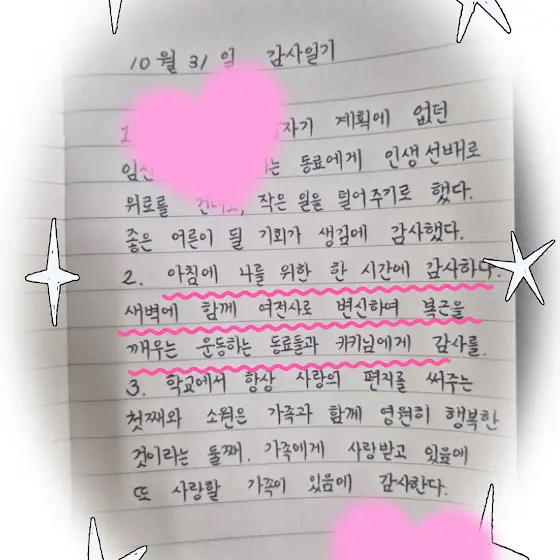 10월 31일 감사일기
1 자기 계획에 없던
임신 는 동료에게 인생선배로
위로를 건네고, 작은 일을 덜어주기로 했다.
좋은 어른이 될 기회가 생김에 감사했다.
2. 아침에 나를 위한 한 시간에 감사하다.
새벽에 함께 여전사로 변신하며 복근을
깨우는 운동하는 동료들과 키키님에게 감사를.
3. 학교에서 항상 사랑의 편지를 써주는
첫째와 소원은 가족과 함께 영원히 행복한
것이라는 둘째. 가족에게 사랑받고 있음에
또 사랑할 가족이 있음에 감사한다.